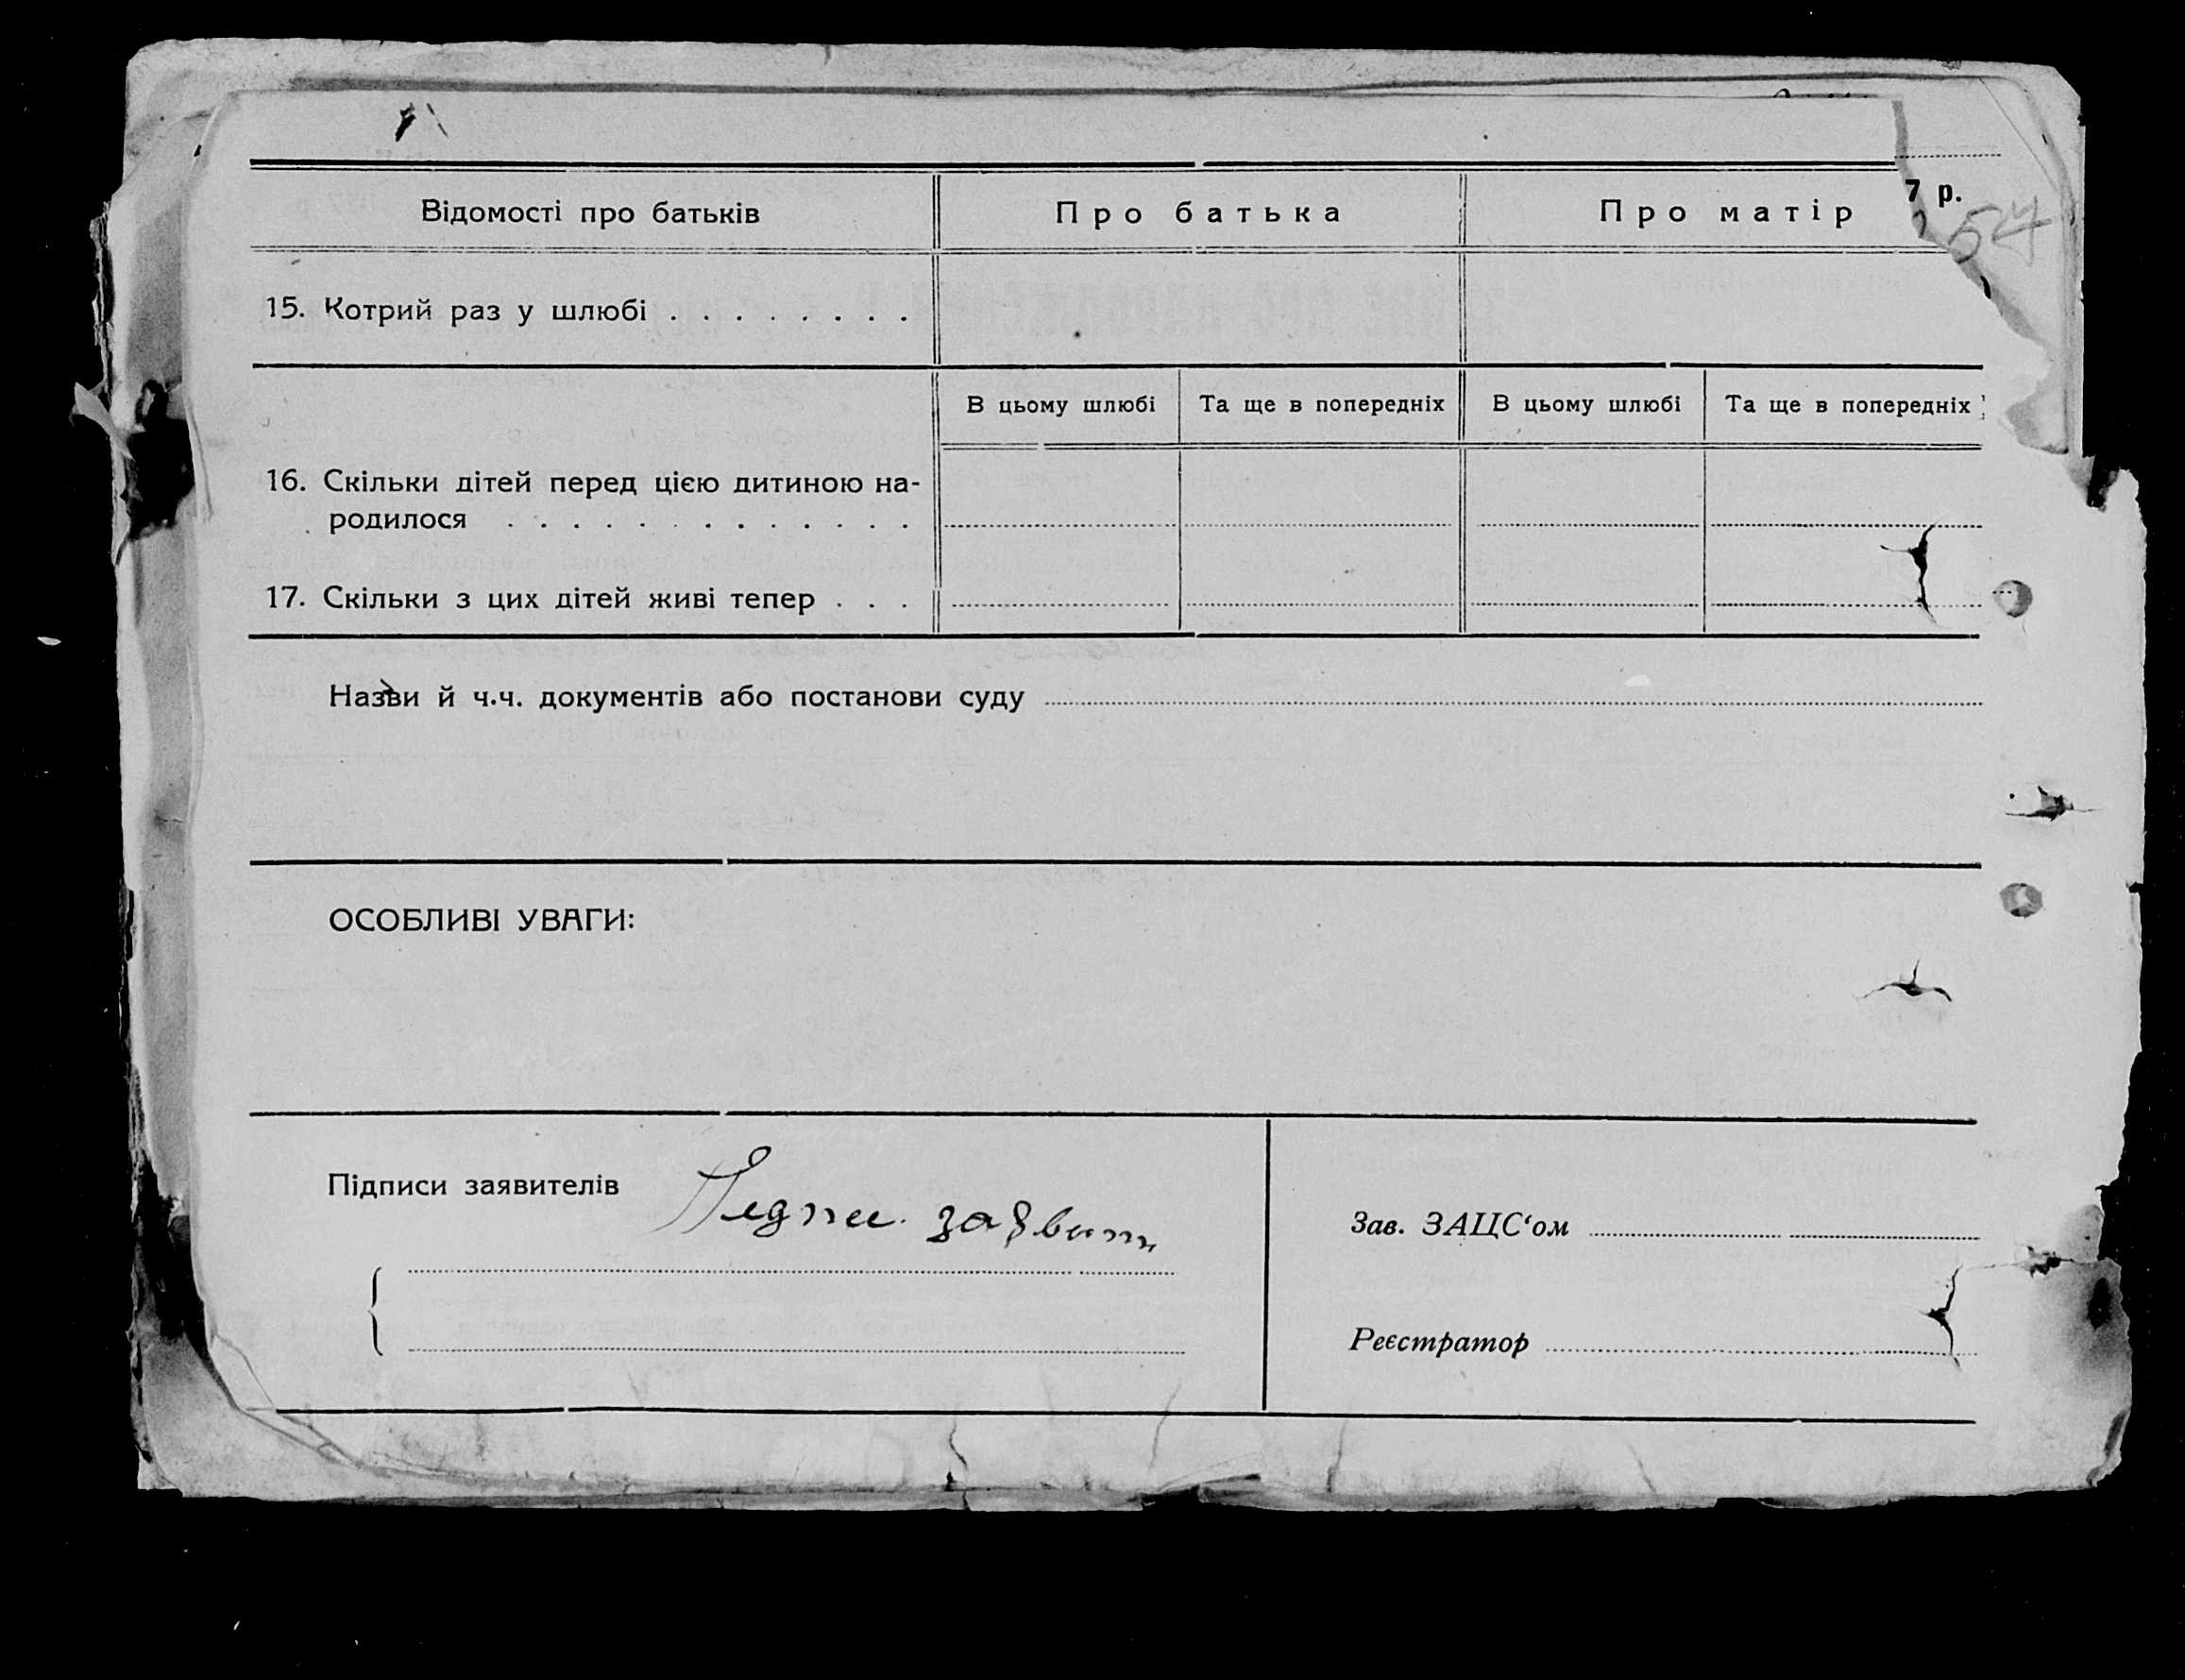 Відомості про батьків Про батька Про матір
7 р.
54
15. Котрий раз у шлюбі
В цьому шлюбі Та ще в попередніх В цьому шлюбі Та ще в попередніх
16. Скільки дітей перед цією дитиною на-
родилося
17. Скільки з цих дітей живі тепер
Назви й ч.ч. документів або постанови суду
ОСОБЛИВІ УВАГИ:
Підписи заявителів
Зав. ЗАЦС‘ом
Реєстратор